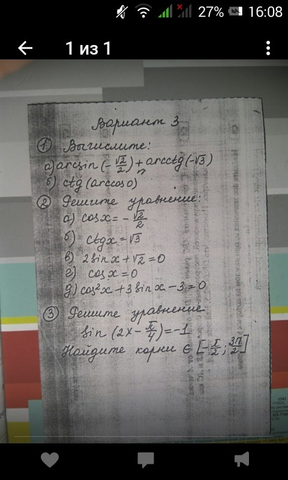 27% 16:08
1 из 1
Вариант 3
① Вычислите:
а) arcsin (-√2/2) + arcctg (-√3)
б) ctg (arccos 0)
② Решите уравнение:
а) cos x = -√2/2
б) ctg x = √3
в) 2 sin x + √2 = 0
г) cos x = 0
д) cos²x + 3 sin x - 3 = 0
③ Решите уравнение
sin (2x - π/4) = -1
Найдите корни ∈ [-π/2; 3π/2]